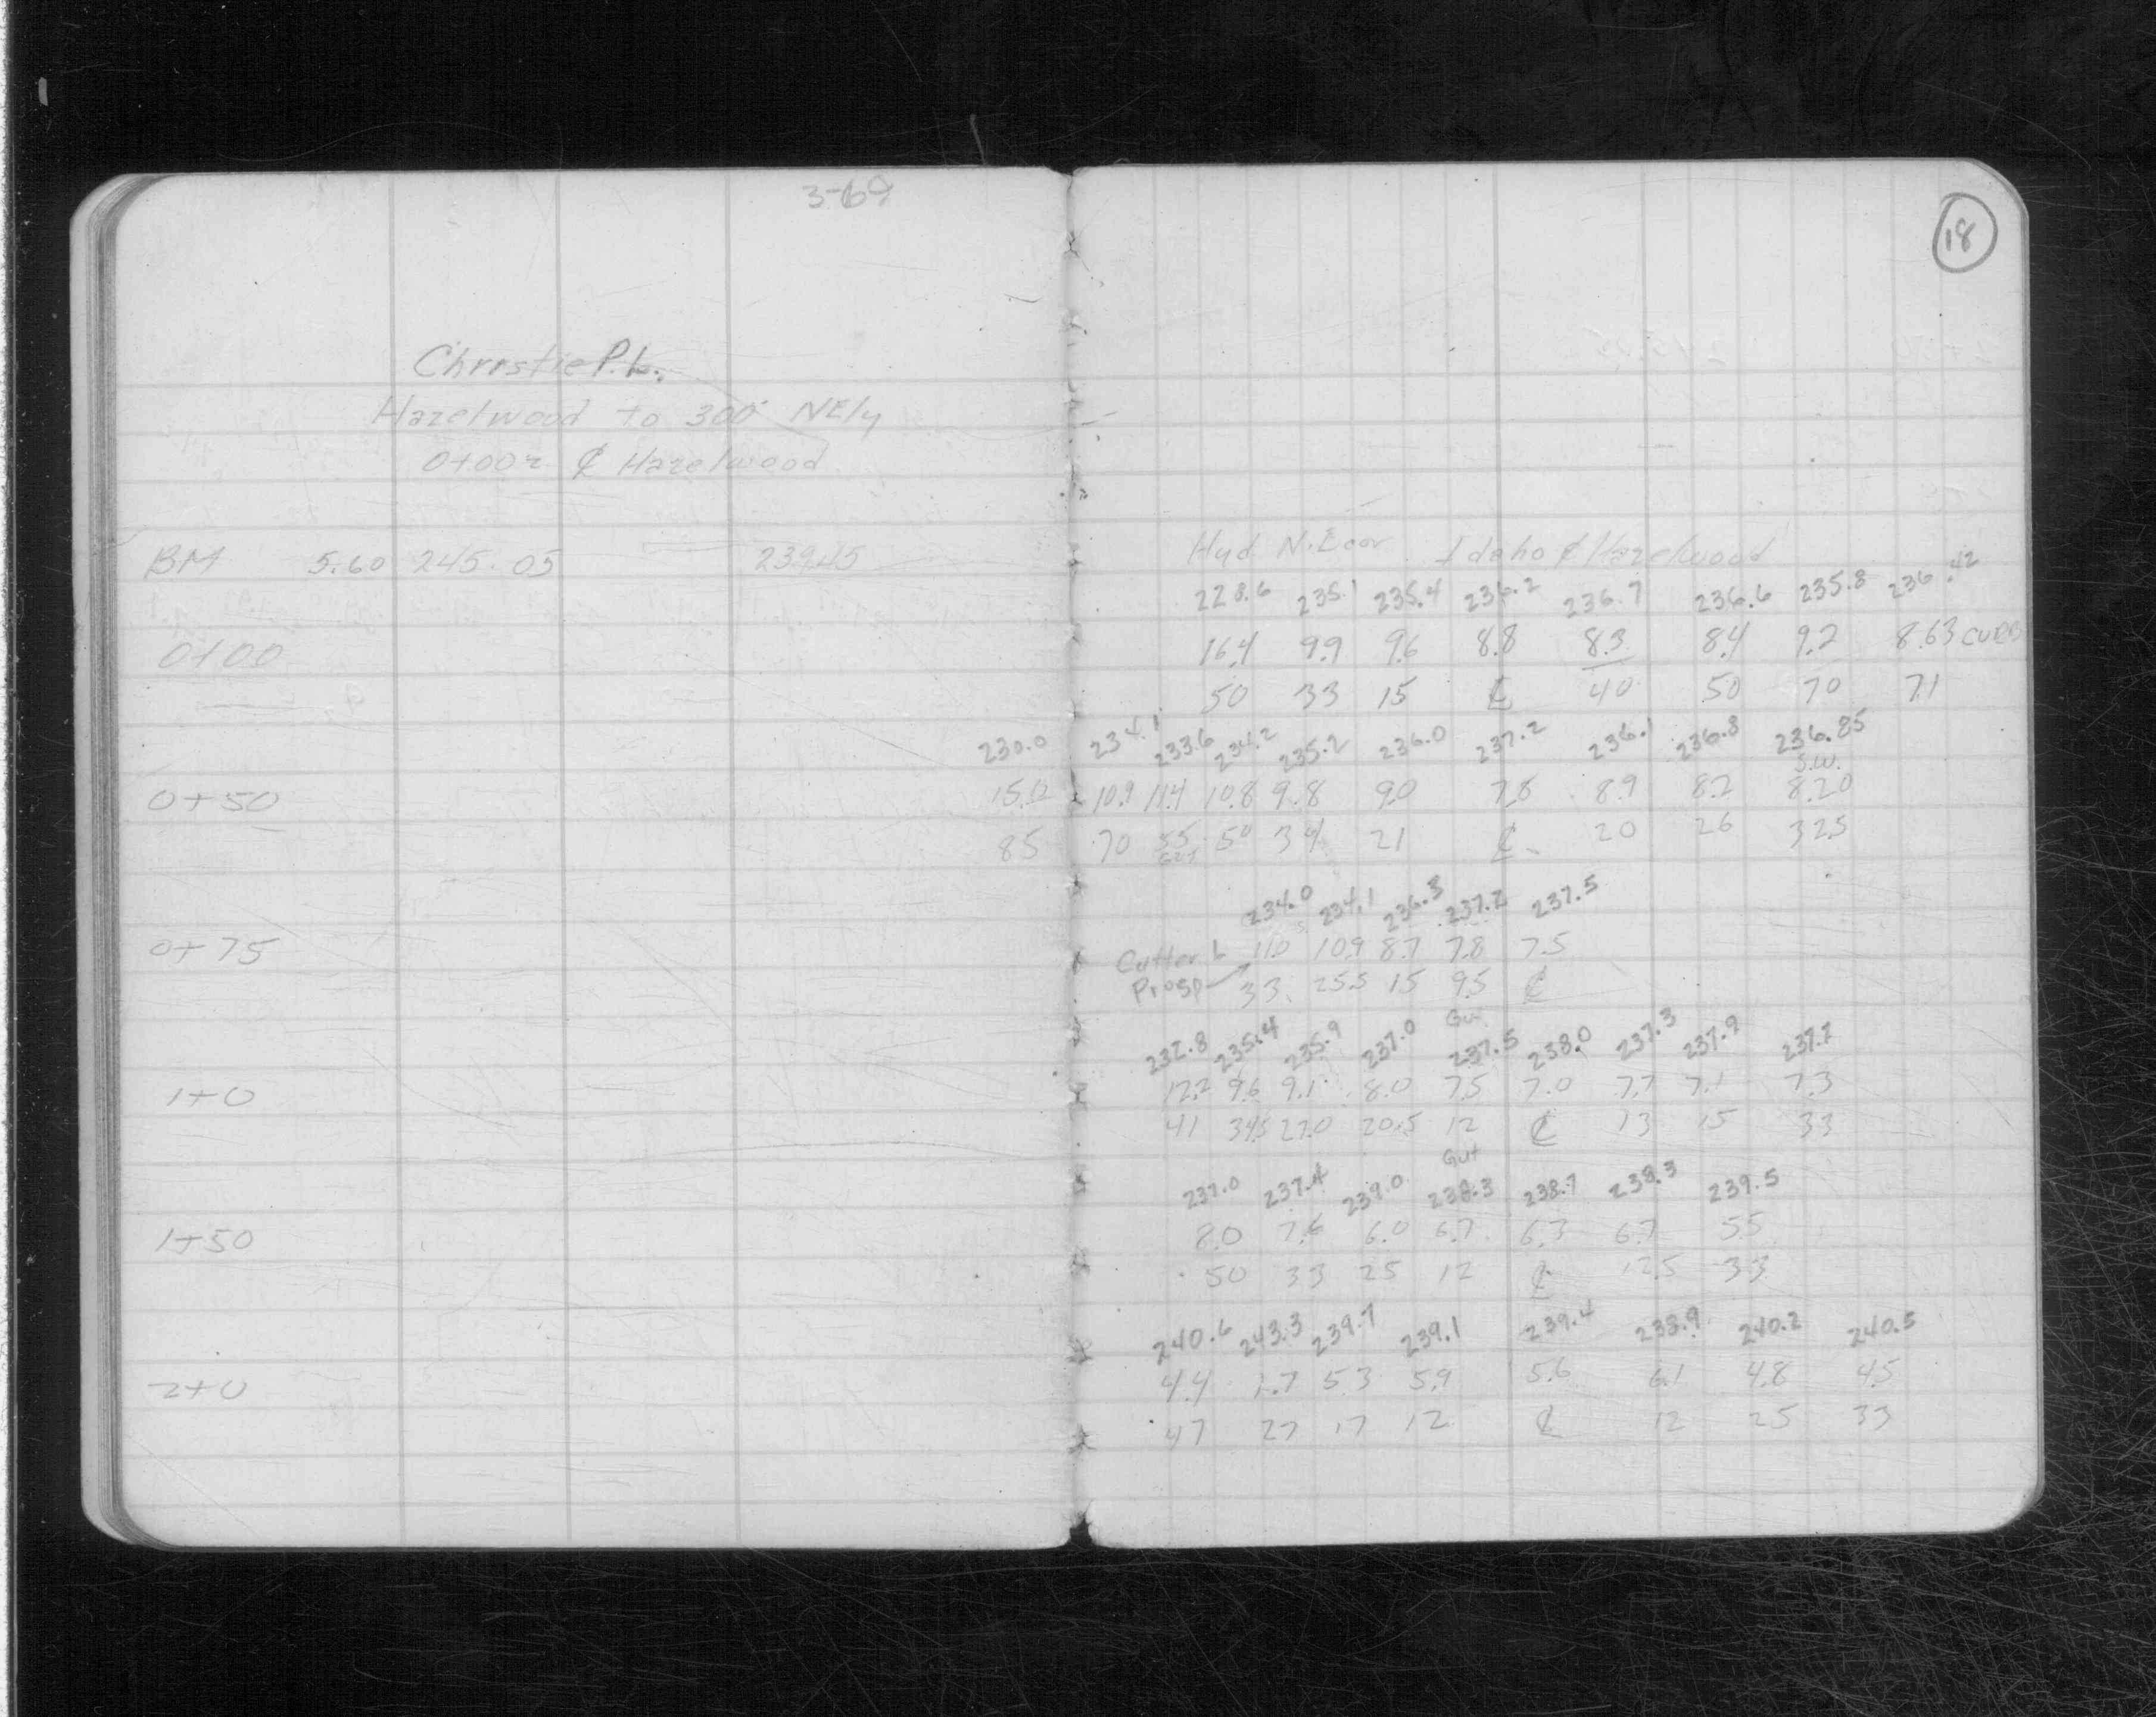 3-69
18
Christie P.L.
Hazelwood to 300' NEly
0+00 = ℄ Hazelwood
BM 5.60 245.05 239.45 Hyd N.E cor Idaho & Hazelwood
228.6 235.1 235.4 236.2 236.7 236.6 235.8 236.42
0+00 16.4 9.9 9.6 8.8 8.3 8.4 9.2 8.63 CURB
50 33 15 ℄ 40 50 70 71
230.0 234.1 233.6 234.2 235.2 236.0 237.2 236.1 236.8 236.85
S.W.
0+50 15.0 10.9 11.4 10.8 9.8 9.0 7.8 8.9 8.2 8.20
85 70 55 50 34 21 ℄ 20 26 32.5
234.0 234.1 236.3 237.2 237.5
0+75 11.0 10.9 8.7 7.8 7.5
Prosp 33 25.5 15 9.5 ℄
Gut
232.8 235.4 235.9 237.0 237.5 238.0 237.3 237.9 237.7
1+0 12.2 9.6 9.1 8.0 7.5 7.0 7.7 7.1 7.3
41 34.5 27.0 20.5 12 ℄ 13 15 33
Gut
237.0 237.4 239.0 238.3 238.7 238.3 239.5
1+50 8.0 7.6 6.0 6.7 6.3 6.7 5.5
50 33 25 12 ℄ 12.5 33
240.6 243.3 239.7 239.1 239.4 238.9 240.2 240.5
2+0 4.4 1.7 5.3 5.9 5.6 6.1 4.8 4.5
47 27 17 12 ℄ 12 25 33